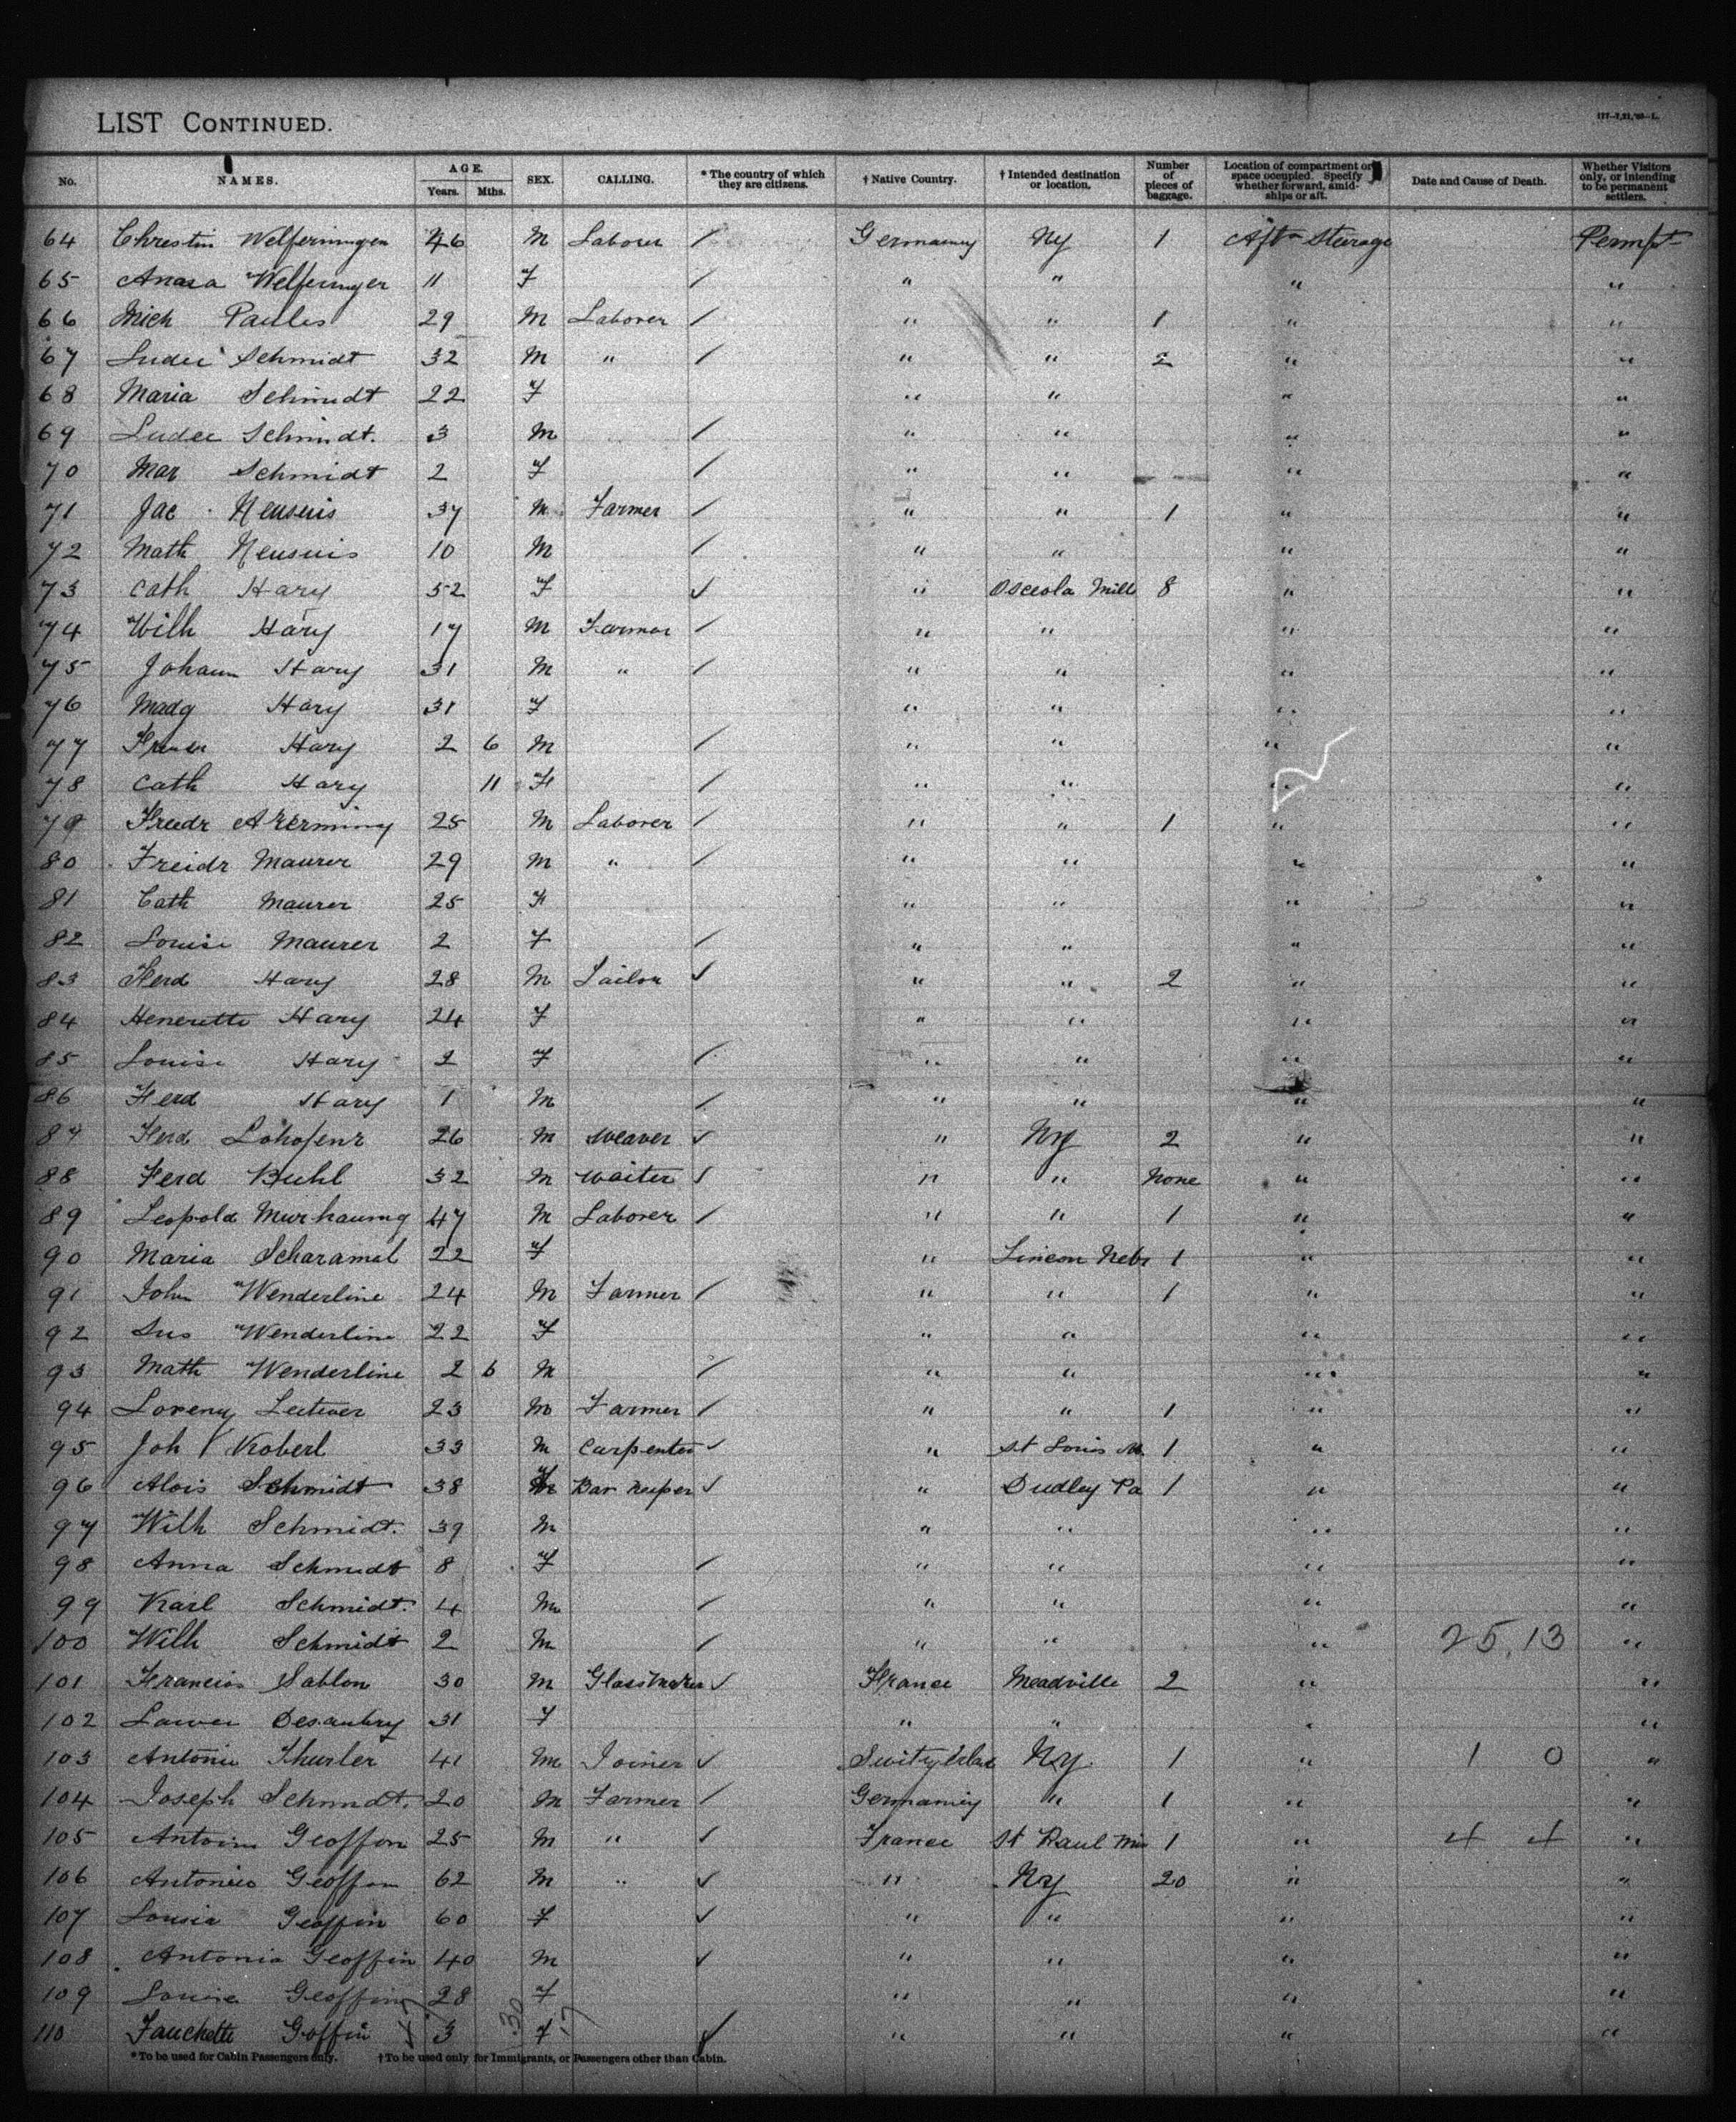 LIST CONTINUED.
No. NAMES. AGE. Years. Mths. SEX. CALLING. * The country of which they are citizens. † Native Country. † Intended destination or location. Number of pieces of baggage. Location of compartment or space occupied. Specify whether forward, amidships or aft. Date and Cause of Death. Whether Visitors only, or intending to be permanent settlers.
64 46 M Laborer / Germainy Ny 1 Aft Sterage Permt
65 11 F / " " " "
66 Mich Paules 29 M Laborer / " " 1 " "
67 Schmidt 32 M " / " " 2 " "
68 Maria Schmidt 22 F " " " "
69 Schmidt. 3 M / " " " "
70 Mar Schmidt 2 F / " " " "
71 Jac Neuseuis 37 M Farmer / " " 1 " "
72 Math Neuseuis 10 M / " " " "
73 Cath Hary 52 F ✓ " Osceola Mills 8 " "
74 Wilh Hary 17 M Farmer / " " " "
75 Johann Hary 31 M " / " " " "
76 Madg Hary 31 F " " " "
77 Hary 2 6 M / " " " "
78 Cath Hary 11 F / " " " "
79 Friedr 25 M Laborer / " " 1 " "
80 Freidr Maurer 29 M " / " " " "
81 Cath Maurer 25 F " " " "
82 Louise Maurer 2 F / " " " "
83 Ferd Hary 28 M Tailor ✓ " " 2 " "
84 Henerette Hary 24 F " " " "
85 Louise Hary 2 F / " " " "
86 Ferd Hary 1 M / " " " "
87 Ferd Lohofenr 26 M Weaver ✓ " Ny 2 " "
88 Ferd Buhl 32 M Waiter ✓ " " None " "
89 Leopold Murhaumg 47 M Laborer / " " 1 " "
90 Maria Scharamel 22 F " Lincon Nebr 1 " "
91 John Wenderline 24 M Farmer / " " 1 " "
92 Sus Wenderline 22 F " " " "
93 Math Wenderline 2 6 M / " " " "
94 Loreny 23 M Farmer / " " 1 " "
95 Joh Koberl 33 M Carpenter ✓ " St Louis M 1 " "
96 Alois Schmidt 38 F Bar Keeper ✓ " Dudley Pa 1 " "
97 Wilh Schmidt. 39 M " " " "
98 Anna Schmidt 8 F / " " " "
99 Karl Schmidt. 4 M / " " " "
100 Wilh Schmidt 2 M / " " " 25,13 "
101 Francios Sablon 30 M Glassmaker ✓ France Meadville 2 " "
102 Desaubry 31 F " " " "
103 Antonie Thurler 41 M Joiner ✓ Ny. 1 " 1 0 "
104 Joseph Schmidt. 20 M Farmer / Germainiy " 1 " "
105 Antoin Geoffin 25 M " ✓ France St Paul Min 1 " 4 4 "
106 Antonies Geoffin 62 M " ✓ " Ny 20 " "
107 Lousia Geoffin 60 F ✓ " " " "
108 Antonia Geoffin 40 M ✓ " " " "
109 Louise Geoffin 28 F " " " "
110 Fauchette Goffin 3 F ✓ " " " "
*To be used for Cabin Passengers only. †To be used only for Immigrants, or Passengers other than Cabin.